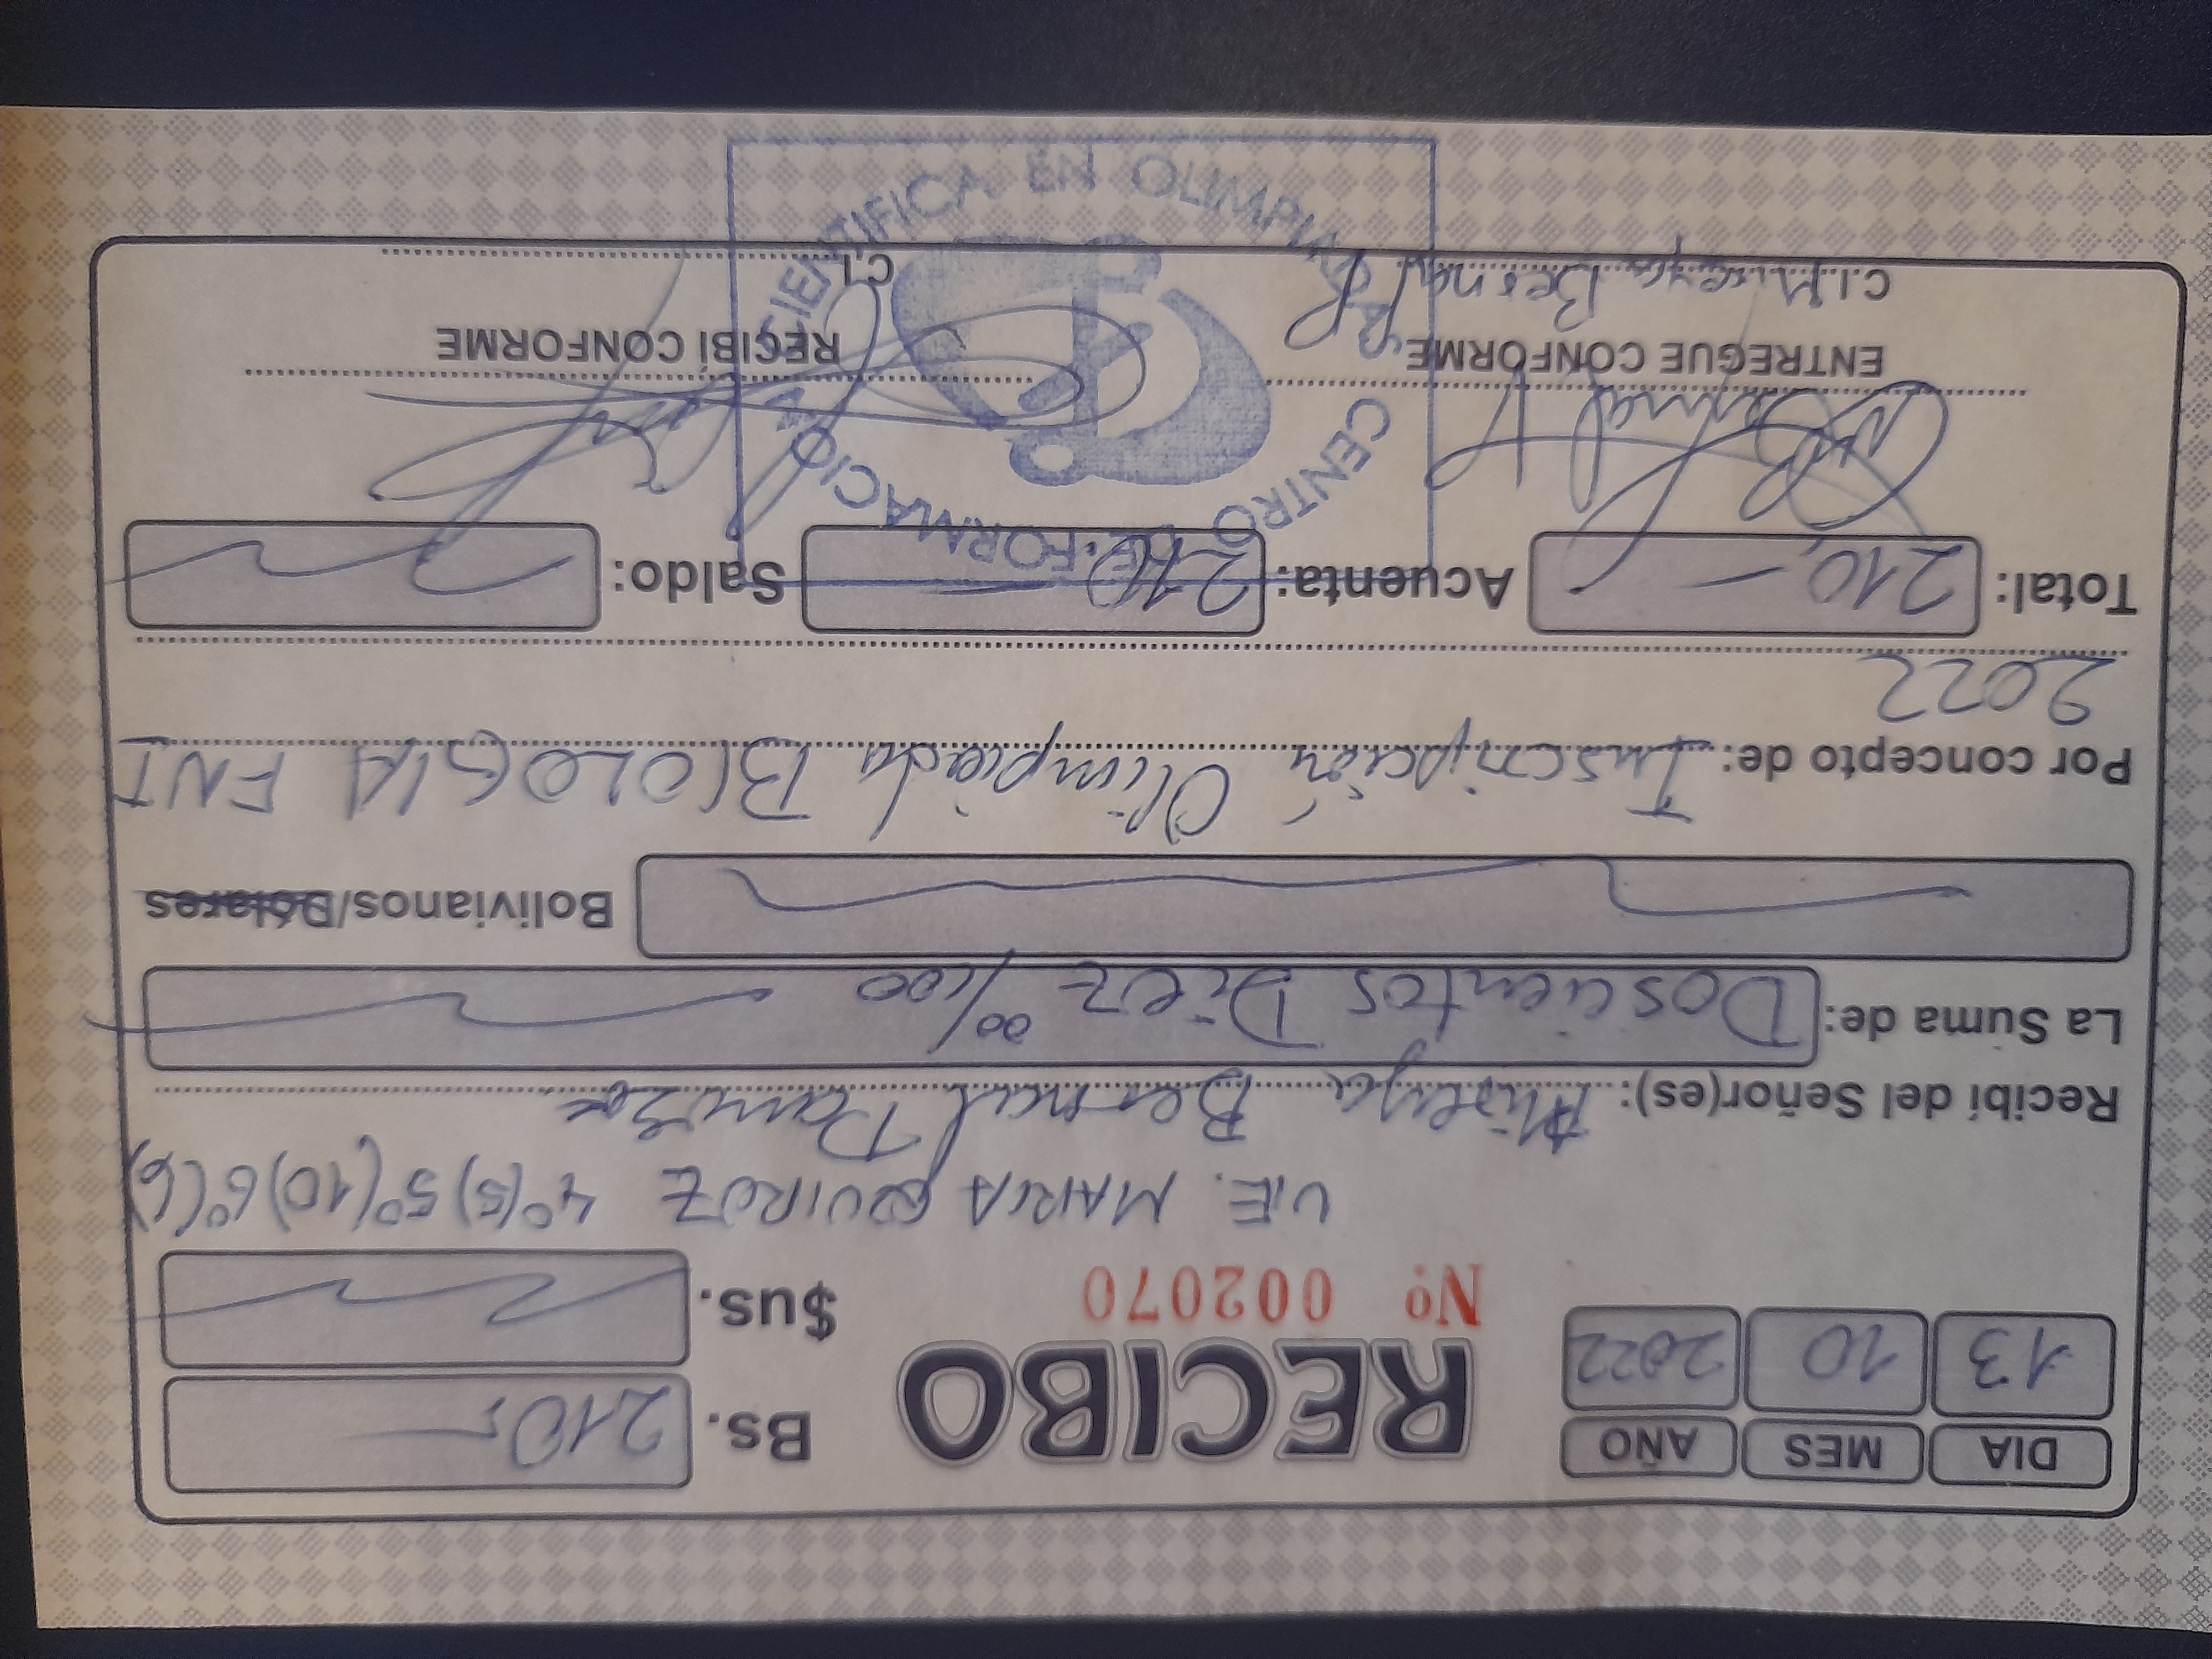 DIA MES AÑO
13 10 2022
RECIBO
Nº 002070
Bs. 210,-
$us.
U.E. MARIA QUIROZ 4º(5) 5º(10) 6º(6)
Recibí del Señor(es): Mireya Bernal
La Suma de: Doscientos Diez 00/100
Bolivianos/Dólares
Por concepto de: Inscripción Olimpiada BIOLOGIA FNI
2022
Total: 210,- Acuenta: 210 Saldo:
ENTREGUE CONFORME
C.I. Mireya Bernal
RECIBÍ CONFORME
C.I.
CENTRO DE FORMACIÓN CIENTIFICA EN OLIMPIADAS